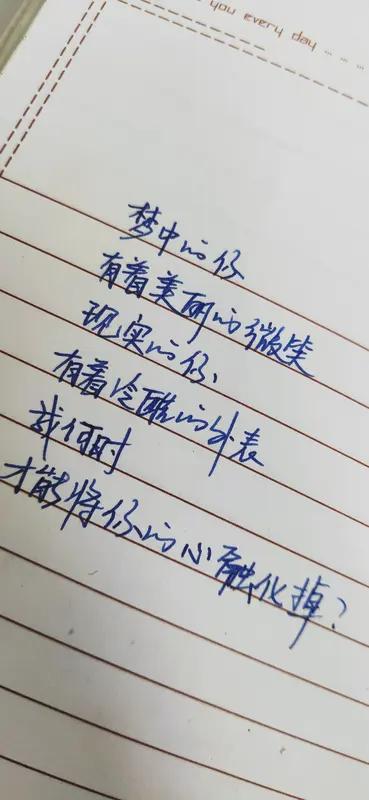 you every day ... ...
梦中的你
有着美丽的微笑
现实的你、
有着冷酷的外表
我何时
才能将你的心融化掉？